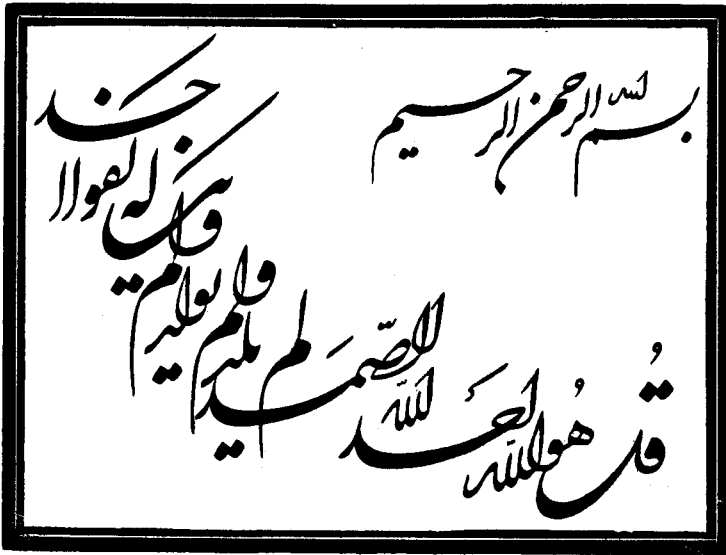 بسم الله الرحمن الرحیم
قُل هُو الله احَد الله الصّمَد لم یلد و لم یولد و لم یکن له کفوا احد